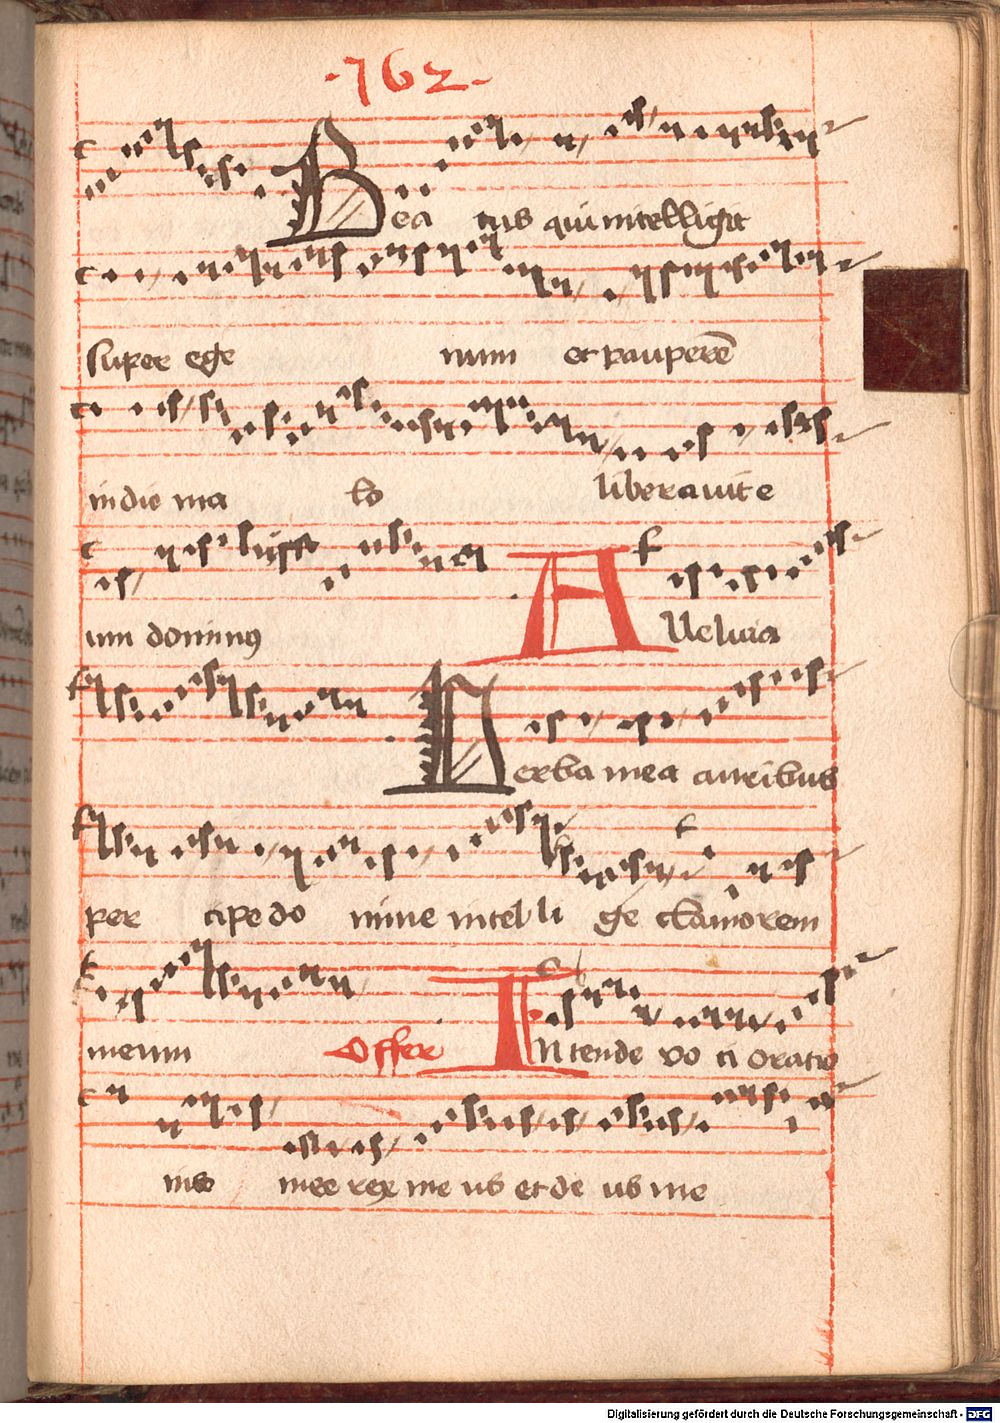 ·162·
Bea tus qui intelligit
super ege num et pauperē
in die ma la liberavit e
um dominus
Alleluia
Verba mea auribus
per cipe do mine intel li ge clamorem
meum Offer Intende vo ci oratio
nis mee rex me us et de us me
Digitalisierung gefördert durch die Deutsche Forschungsgemeinschaft - DFG